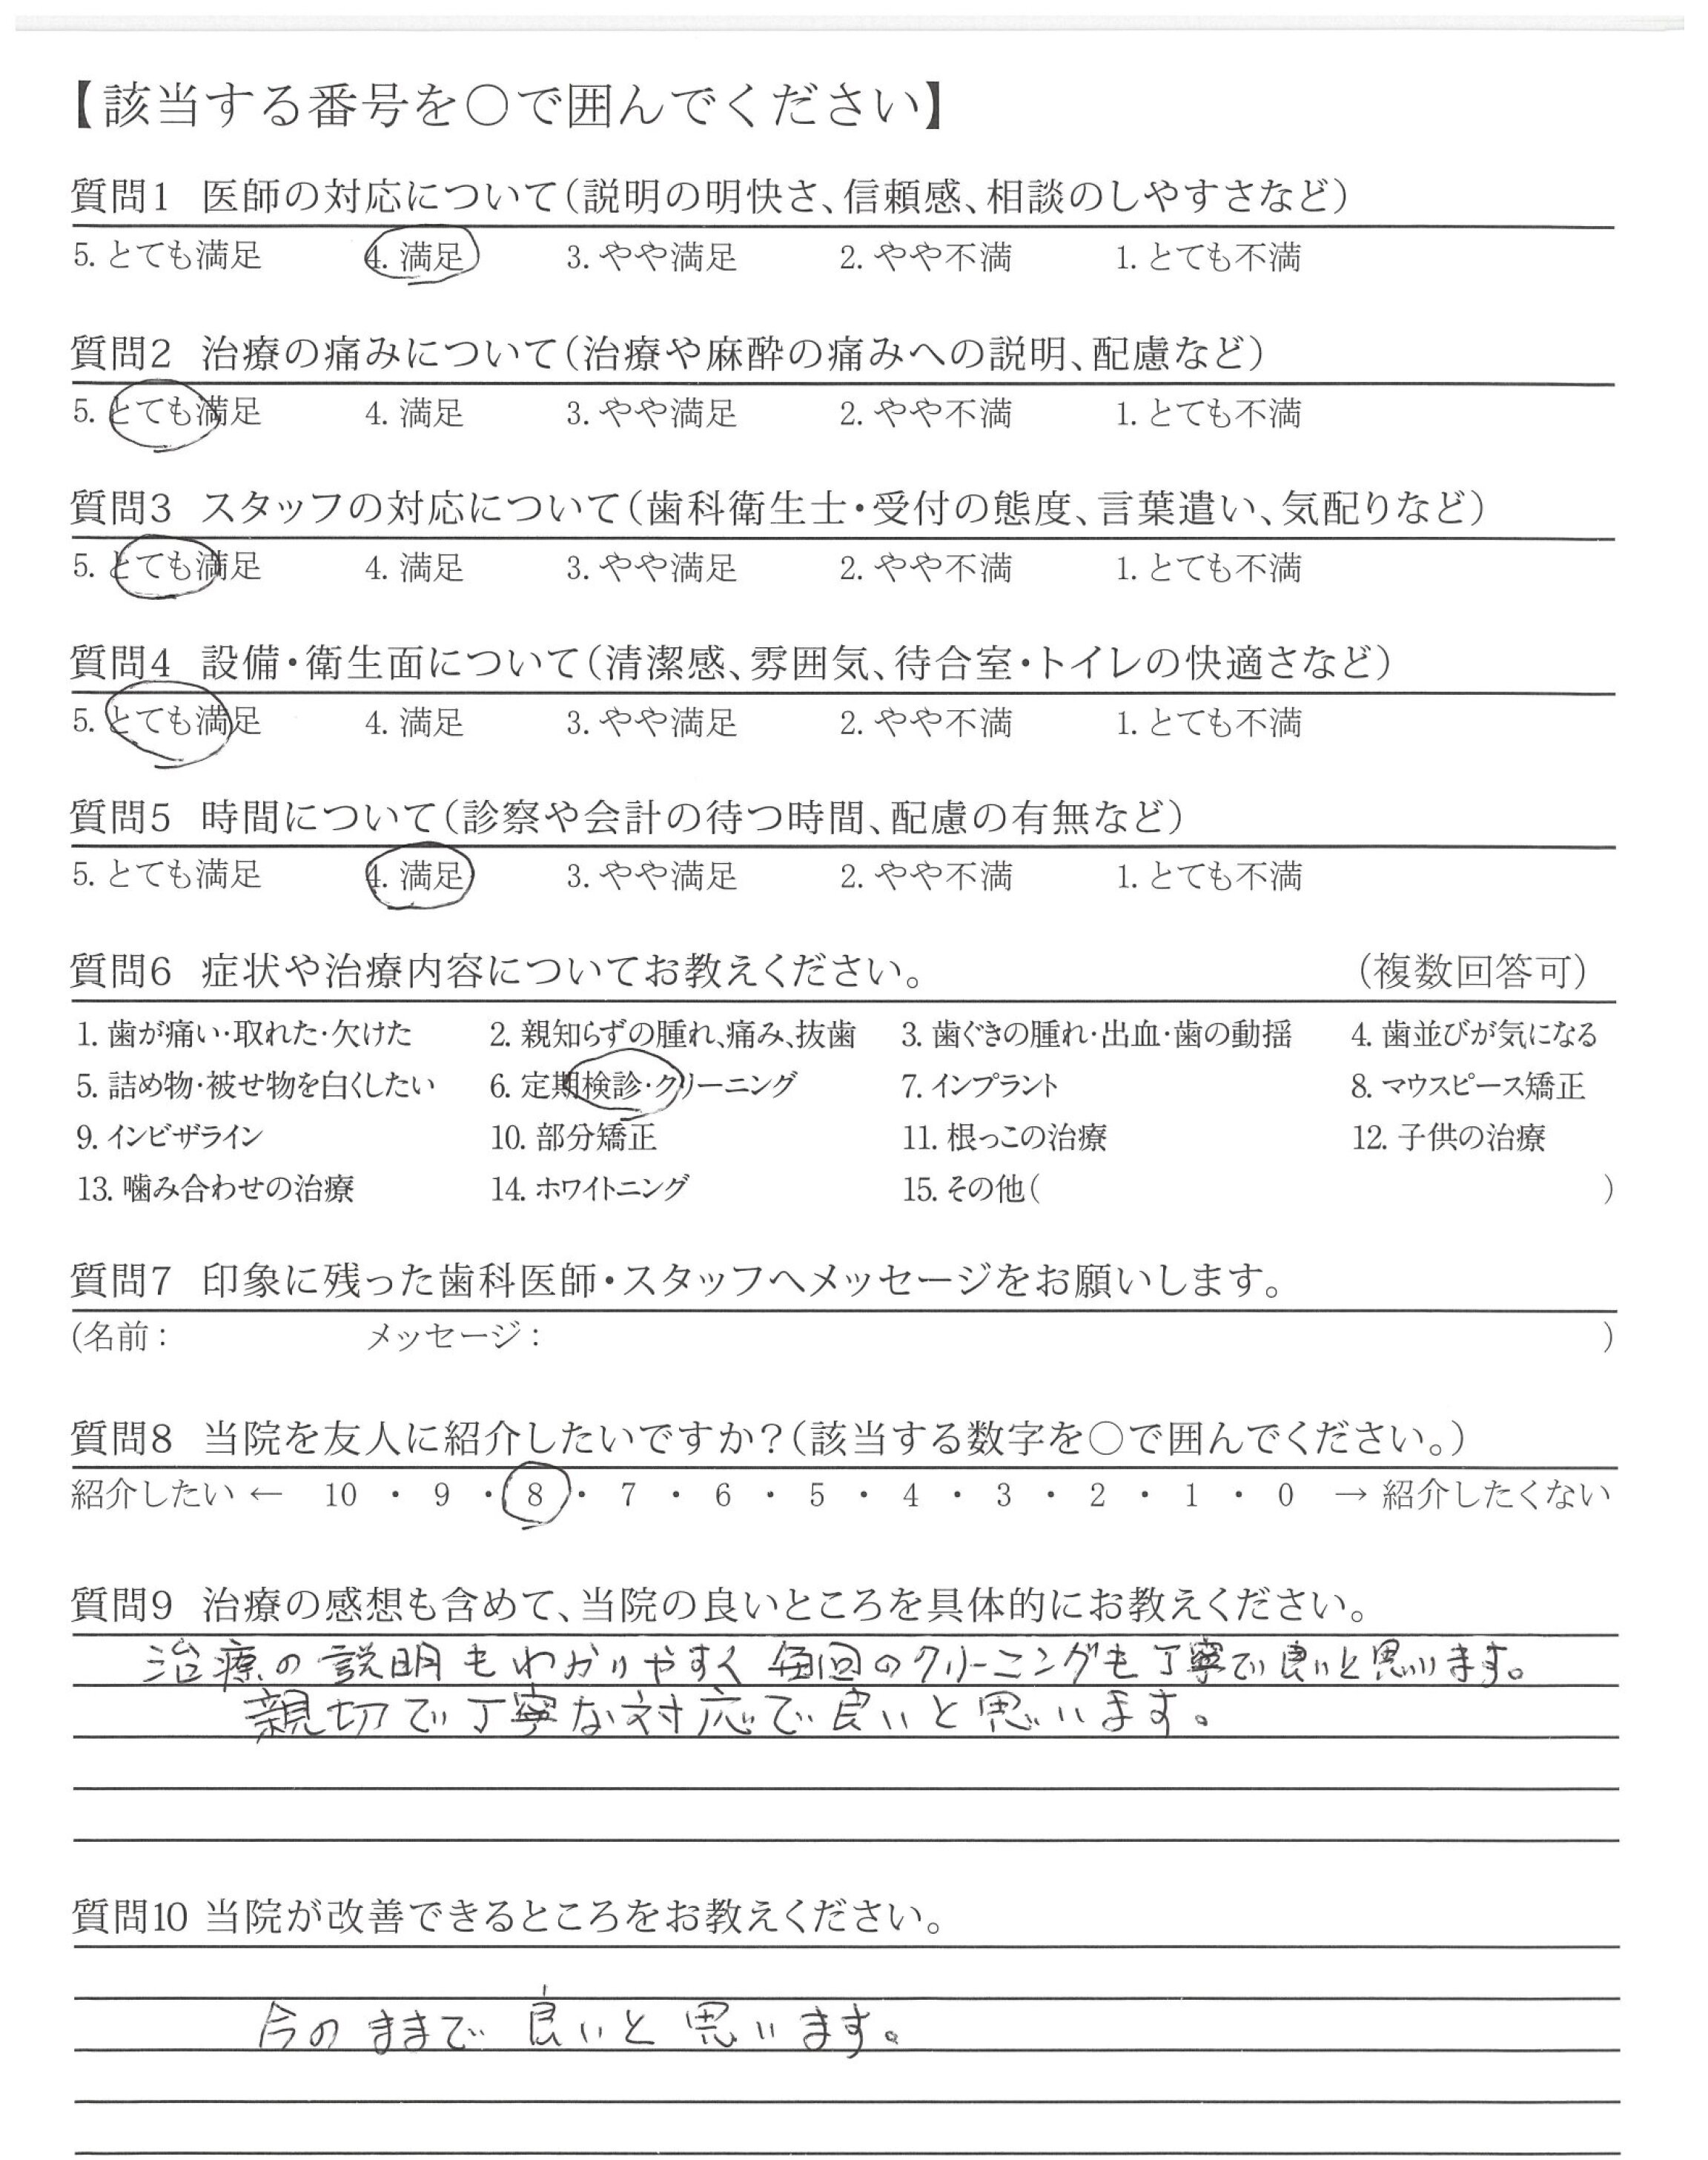 【該当する番号を○で囲んでください】
質問1 医師の対応について(説明の明快さ、信頼感、相談のしやすさなど)
5. とても満足 4. 満足 3. やや満足 2. やや不満 1. とても不満
質問2 治療の痛みについて(治療や麻酔の痛みへの説明、配慮など)
5. とても満足 4. 満足 3. やや満足 2. やや不満 1. とても不満
質問3 スタッフの対応について(歯科衛生士・受付の態度、言葉遣い、気配りなど)
5. とても満足 4. 満足 3. やや満足 2. やや不満 1. とても不満
質問4 設備・衛生面について(清潔感、雰囲気、待合室・トイレの快適さなど)
5. とても満足 4. 満足 3. やや満足 2. やや不満 1. とても不満
質問5 時間について(診察や会計の待つ時間、配慮の有無など)
5. とても満足 4. 満足 3. やや満足 2. やや不満 1. とても不満
質問6 症状や治療内容についてお教えください。 (複数回答可)
1. 歯が痛い・取れた・欠けた 2. 親知らずの腫れ、痛み、抜歯 3. 歯ぐきの腫れ・出血・歯の動揺 4. 歯並びが気になる
5. 詰め物・被せ物を白くしたい 6. 定期検診・クリーニング 7. インプラント 8. マウスピース矯正
9. インビザライン 10. 部分矯正 11. 根っこの治療 12. 子供の治療
13. 噛み合わせの治療 14. ホワイトニング 15. その他( )
質問7 印象に残った歯科医師・スタッフへメッセージをお願いします。
(名前: メッセージ: )
質問8 当院を友人に紹介したいですか?(該当する数字を○で囲んでください。)
紹介したい ← 10 ・ 9 ・ 8 ・ 7 ・ 6 ・ 5 ・ 4 ・ 3 ・ 2 ・ 1 ・ 0 → 紹介したくない
質問9 治療の感想も含めて、当院の良いところを具体的にお教えください。
治療の説明もわかりやすく毎回のクリーニングも丁寧で良いと思います。
親切で丁寧な対応で良いと思います。
質問10 当院が改善できるところをお教えください。
今のままで良いと思います。